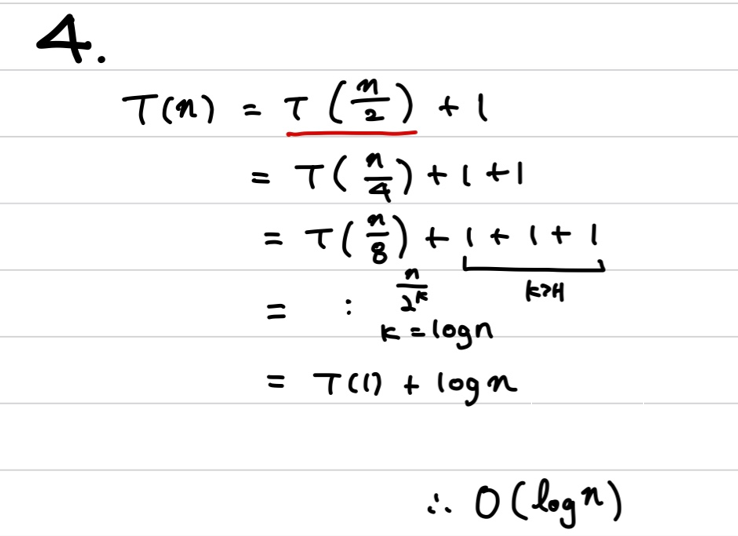 4.
T(n) = T(n/2) + 1
= T(n/4) + 1 + 1
= T(n/8) + 1 + 1 + 1
k개
= : n/2^k
k = log n
= T(1) + log n
∴ O(log n)